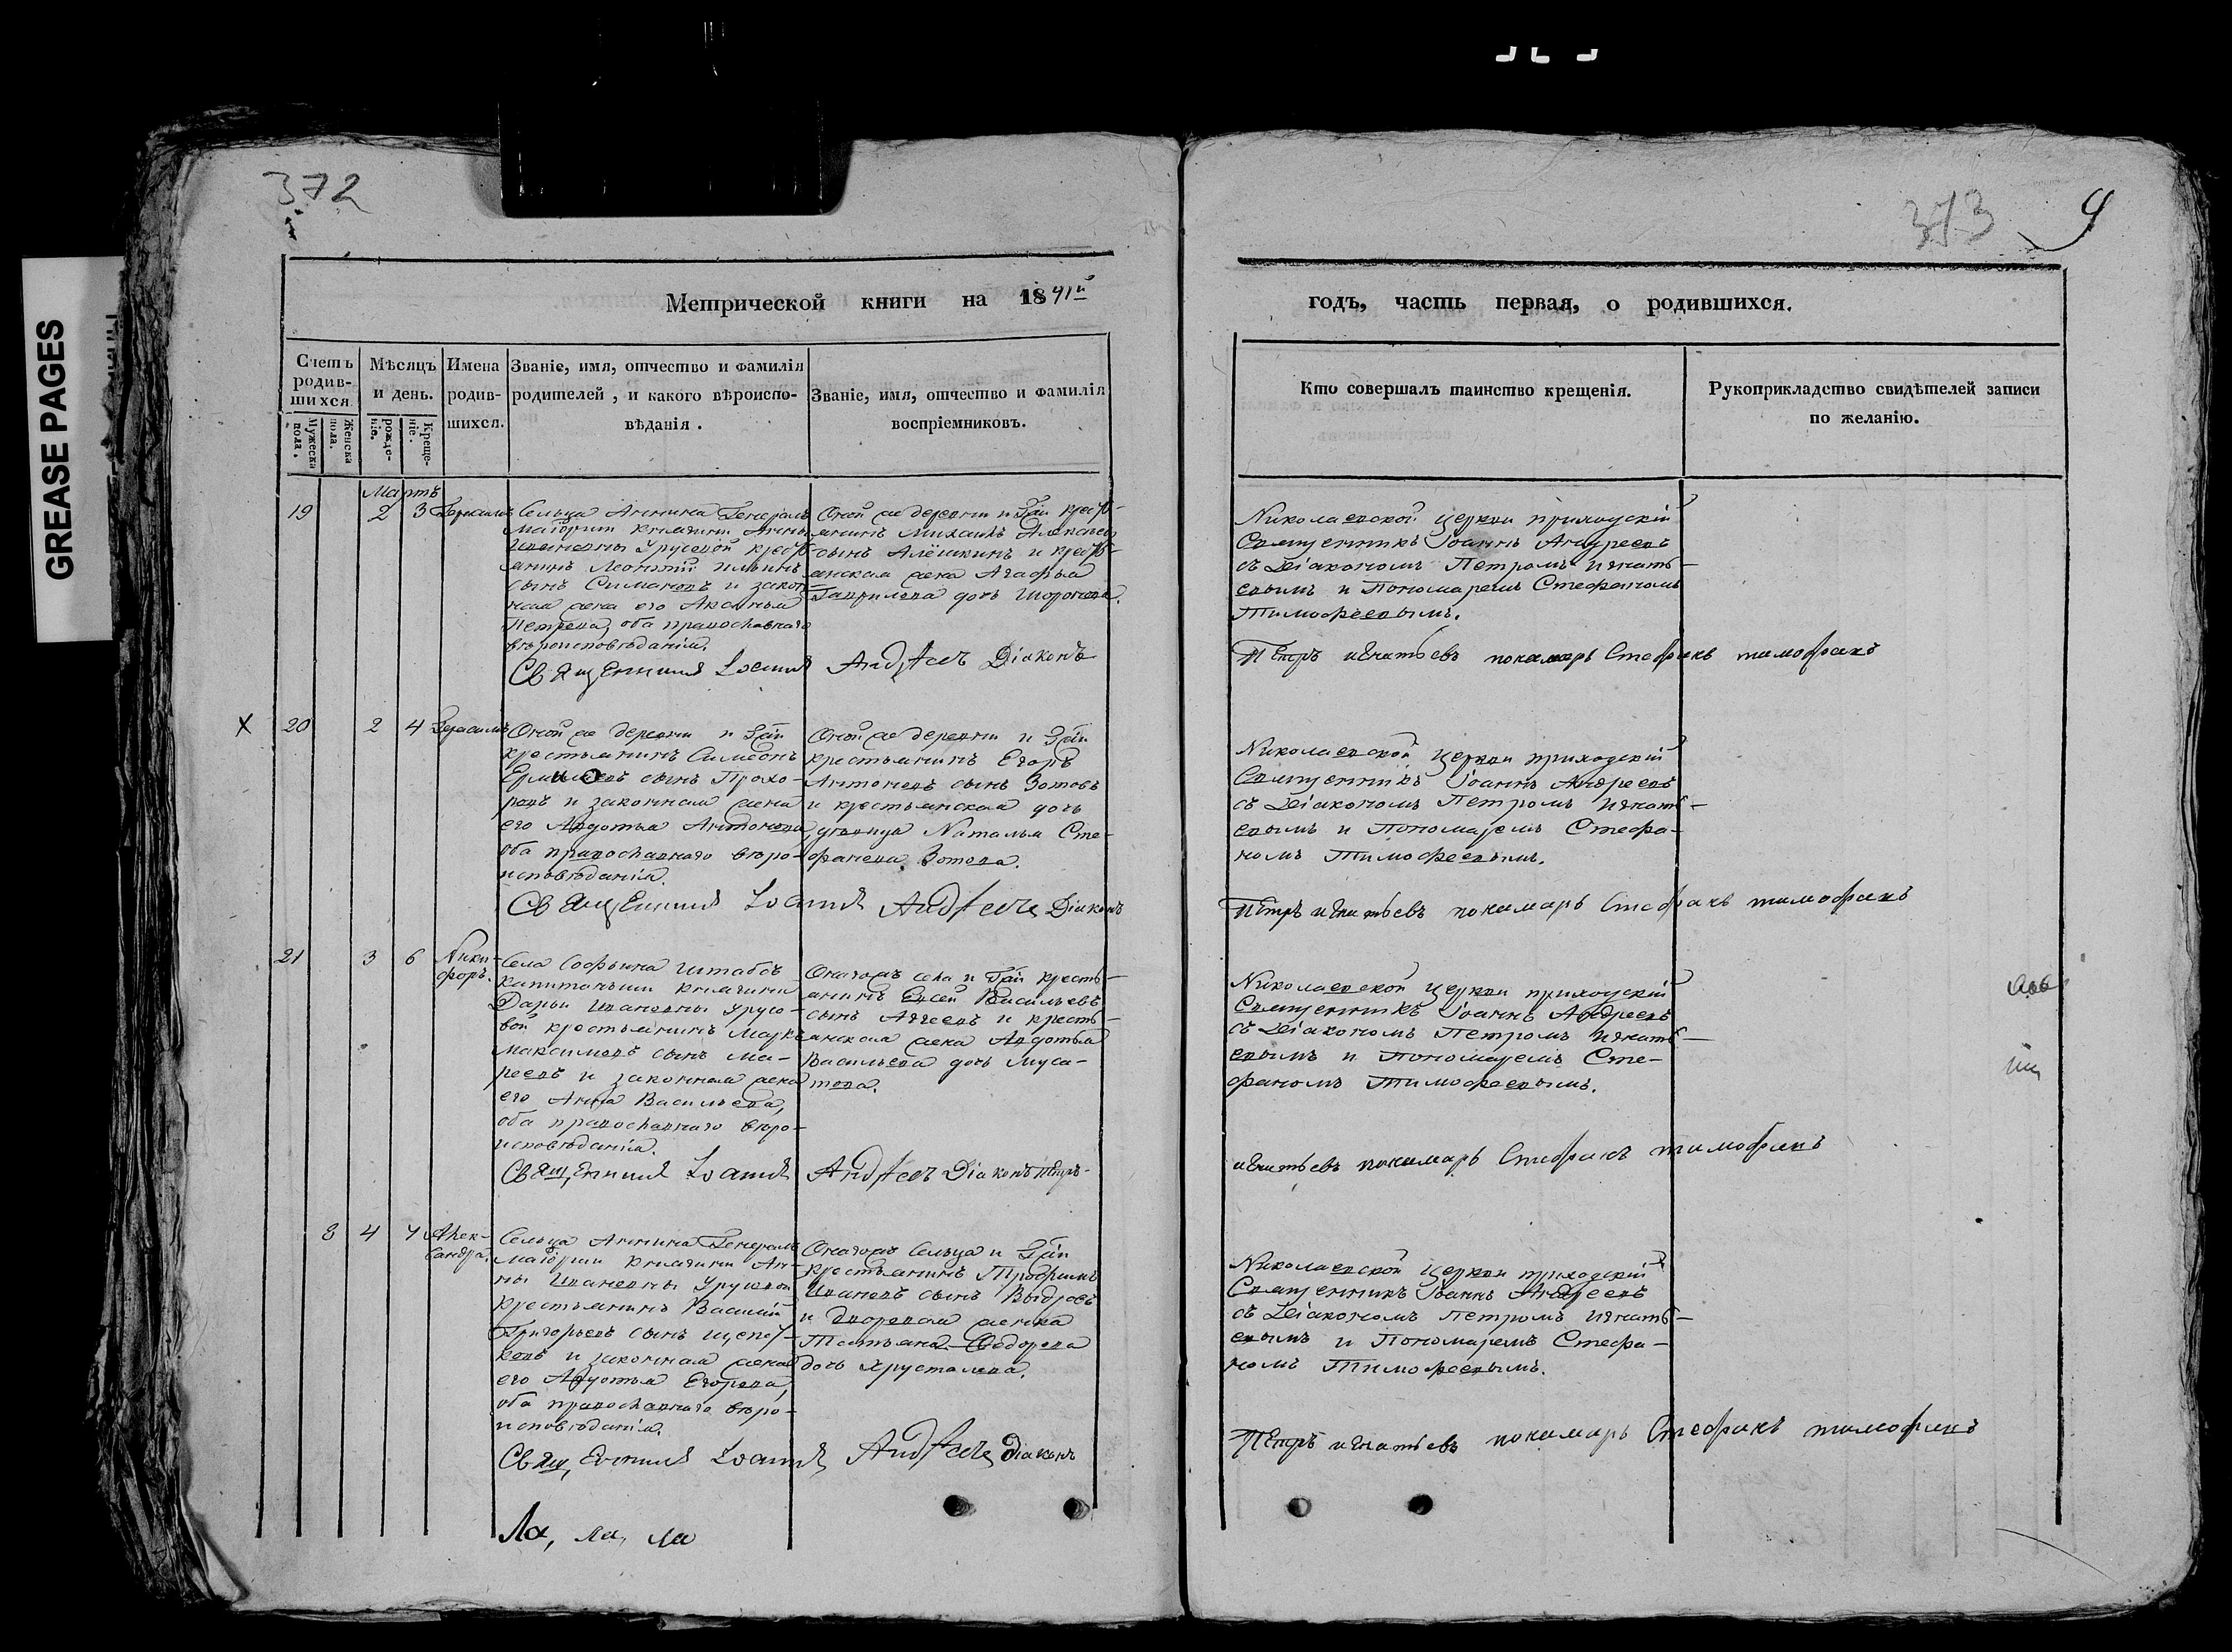 GREASE PAGES
372
373 9
Метрической книги на 1841й
годъ, часть первая, о родившихся.
Счетъ родив-шихся.
Мужеска пола.
Женска пола.
Мѣсяцъ и день.
рожде-нія.
Креще-ніе.
Имена родив-шихся.
Званіе, имя, отчество и фамилія
родителей, и какого вѣроиспо-
вѣданія.
Званіе, имя, отчество и фамилія
воспріемниковъ.
Кто совершалъ таинство крещенія.
Рукоприкладство свидѣтелей записи
по желанію.
Мартъ
19 2 3 Герасимъ
Сельца Аннина Генералъ
Маіорши Княгини Анны
Ивановны Урусовой кресть-
янинъ Леонтій Ильинъ
сынъ Симановъ и закон-
ная жена его Аксинья
Петрова, оба православнаго
вѣроисповѣданія.
Оной же деревни и Г̃жи кресть-
янинъ Михаилъ Алексѣевъ
сынъ Алёшкинъ и кресть-
янская жена Агафья
Гаврилова дочь Шоронова.
Священникъ Іоаннъ Андреевъ Діаконъ
Николаевской церкви приходскій
Священникъ Іоаннъ Андреевъ
съ Діакономъ Петромъ Игнать-
евымъ и Пономаремъ Стефаномъ
Тимофеевымъ.
Петръ игнатьевъ пономарь Стефанъ тимофеевъ
X 20 2 4 Герасимъ
Оной же деревни и Г̃жи
крестьянинъ Симеонъ
Ермиловъ сынъ Прохо-
ровъ и законная жена
его Авдотья Антонова,
оба православнаго вѣро-
исповѣданія.
Оной же деревни и Г̃жи
крестьянинъ Егоръ
Антоновъ сынъ Зотовъ
и крестьянская дочь
дѣвица Наталья Сте-
фанова Зотова.
Священникъ Іоаннъ Андреевъ Діаконъ
Николаевской церкви приходскій
Священникъ Іоаннъ Андреевъ
съ Діакономъ Петромъ Игнать-
евымъ и Пономаремъ Стефа-
номъ Тимофеевымъ.
Петръ игнатьевъ пономарь Стефанъ тимофеевъ
21 3 6 Ники-
форъ.
Села Софьина Штабсъ
Капитанши Княгини
Дарьи Ивановны Урусо-
вой крестьянинъ Маркъ
Максимовъ сынъ Ма-
реевъ и законная жена
его Анна Васильева,
оба православнаго вѣро-
исповѣданія.
Онагожъ села и Г̃жи кресть-
янинъ Евсей Васильевъ
сынъ Авдеевъ и кресть-
янская жена Авдотья
Васильева дочь Муса-
това.
Священникъ Іоаннъ Андреевъ Діаконъ Петръ
Николаевской церкви приходскій
Священникъ Іоаннъ Андреевъ
съ Діакономъ Петромъ Игнать-
евымъ и Пономаремъ Сте-
фаномъ Тимофеевымъ.
игнатьевъ пономарь Стефанъ тимофеевъ
8 4 7 Алек-
сандра.
Сельца Аннина Генералъ
Маіорши Княгини Ан-
ны Ивановны Урусовой
крестьянинъ Василій
Григорьевъ сынъ
и законная жена
его Авдотья Егорова,
оба православнаго вѣро-
исповѣданія.
Онагожъ Сельца и Г̃жи
крестьянинъ Трофимъ
Ивановъ сынъ Выдровъ
и дворовая женка
Татьяна Федорова
дочь Хрусталева.
Священникъ Іоаннъ Андреевъ Діаконъ
Николаевской церкви приходскій
Священникъ Іоаннъ Андреевъ
съ Діакономъ Петромъ Игнать-
евымъ и Пономаремъ Стефа-
номъ Тимофеевымъ.
Петръ игнатьевъ пономарь Стефанъ тимофеевъ
Ла, ла, ла